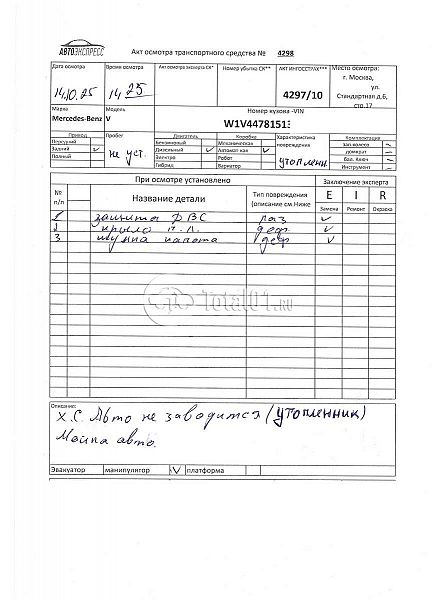 АВТОЭКСПРЕСС
Акт осмотра транспортного средства № 4298
Дата осмотра Время осмотра Акт осмотра эксперта СК* Номер убытка СК** АКТ ИНГОССТРАХ*** Место осмотра:
14.10.25 14 25 4297/10 г. Москва, ул. Стандартная д.6, стр.17
Марка Модель Номер кузова -VIN
Mercedes-Benz V W1V4478151
Привод Пробег Двигатель Коробка Характеристика повреждения Комплектация
Передний Бензиновый Механическая зап.колесо –
Задний ✓ не уст. Дизельный ✓ Автомат кая ✓ домкрат –
Полный Электро Робот утопленн. бал. Ключ –
Гибрид Вариатор Инструмент –
При осмотре установлено Заключение эксперта
№ п/п Название детали Тип повреждения (описание см.Ниже E I R
Замена Ремонт Окраска
1 защита ДВС паз ✓
2 крыло п.л. деф. ✓
3 шумка капота деф ✓
Total01.RU
Описание:
Х.С. Авто не заводится (утопленник)
Мойка авто.
Эвакуатор манипулятор V платформа